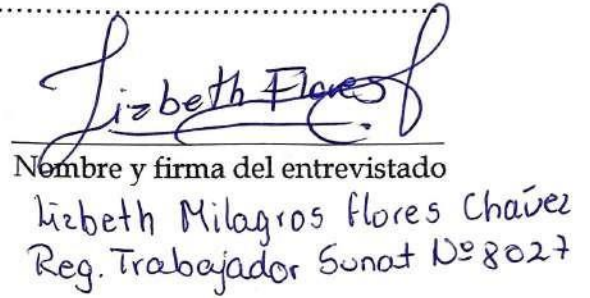 Lizbeth Flores
Nombre y firma del entrevistado
Lizbeth Milagros Flores Chávez
Reg. Trabajador Sunat Nº 8027